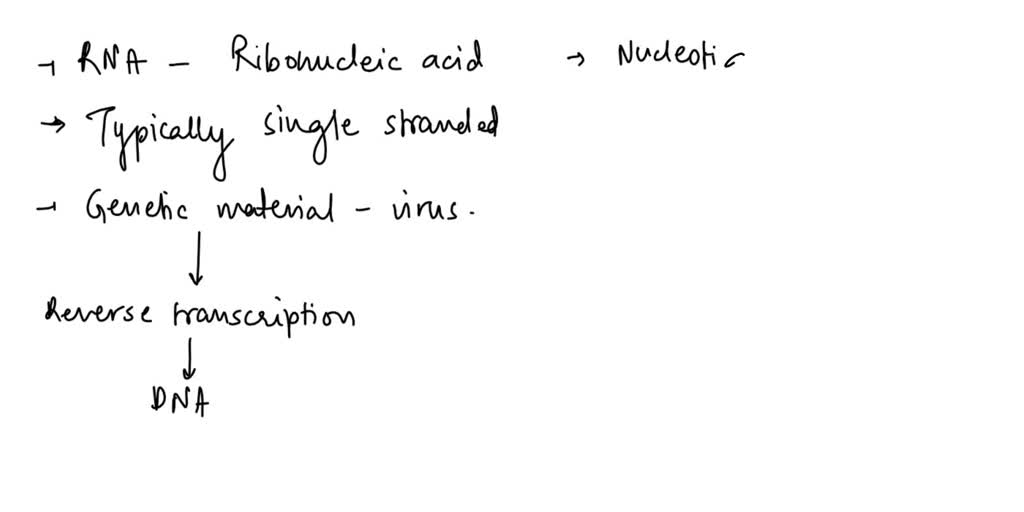 → RNA - Ribonucleic acid → Nucleotic
→ Typically single stranded
→ Genetic material - virus.
↓
Reverse transcription
↓
DNA